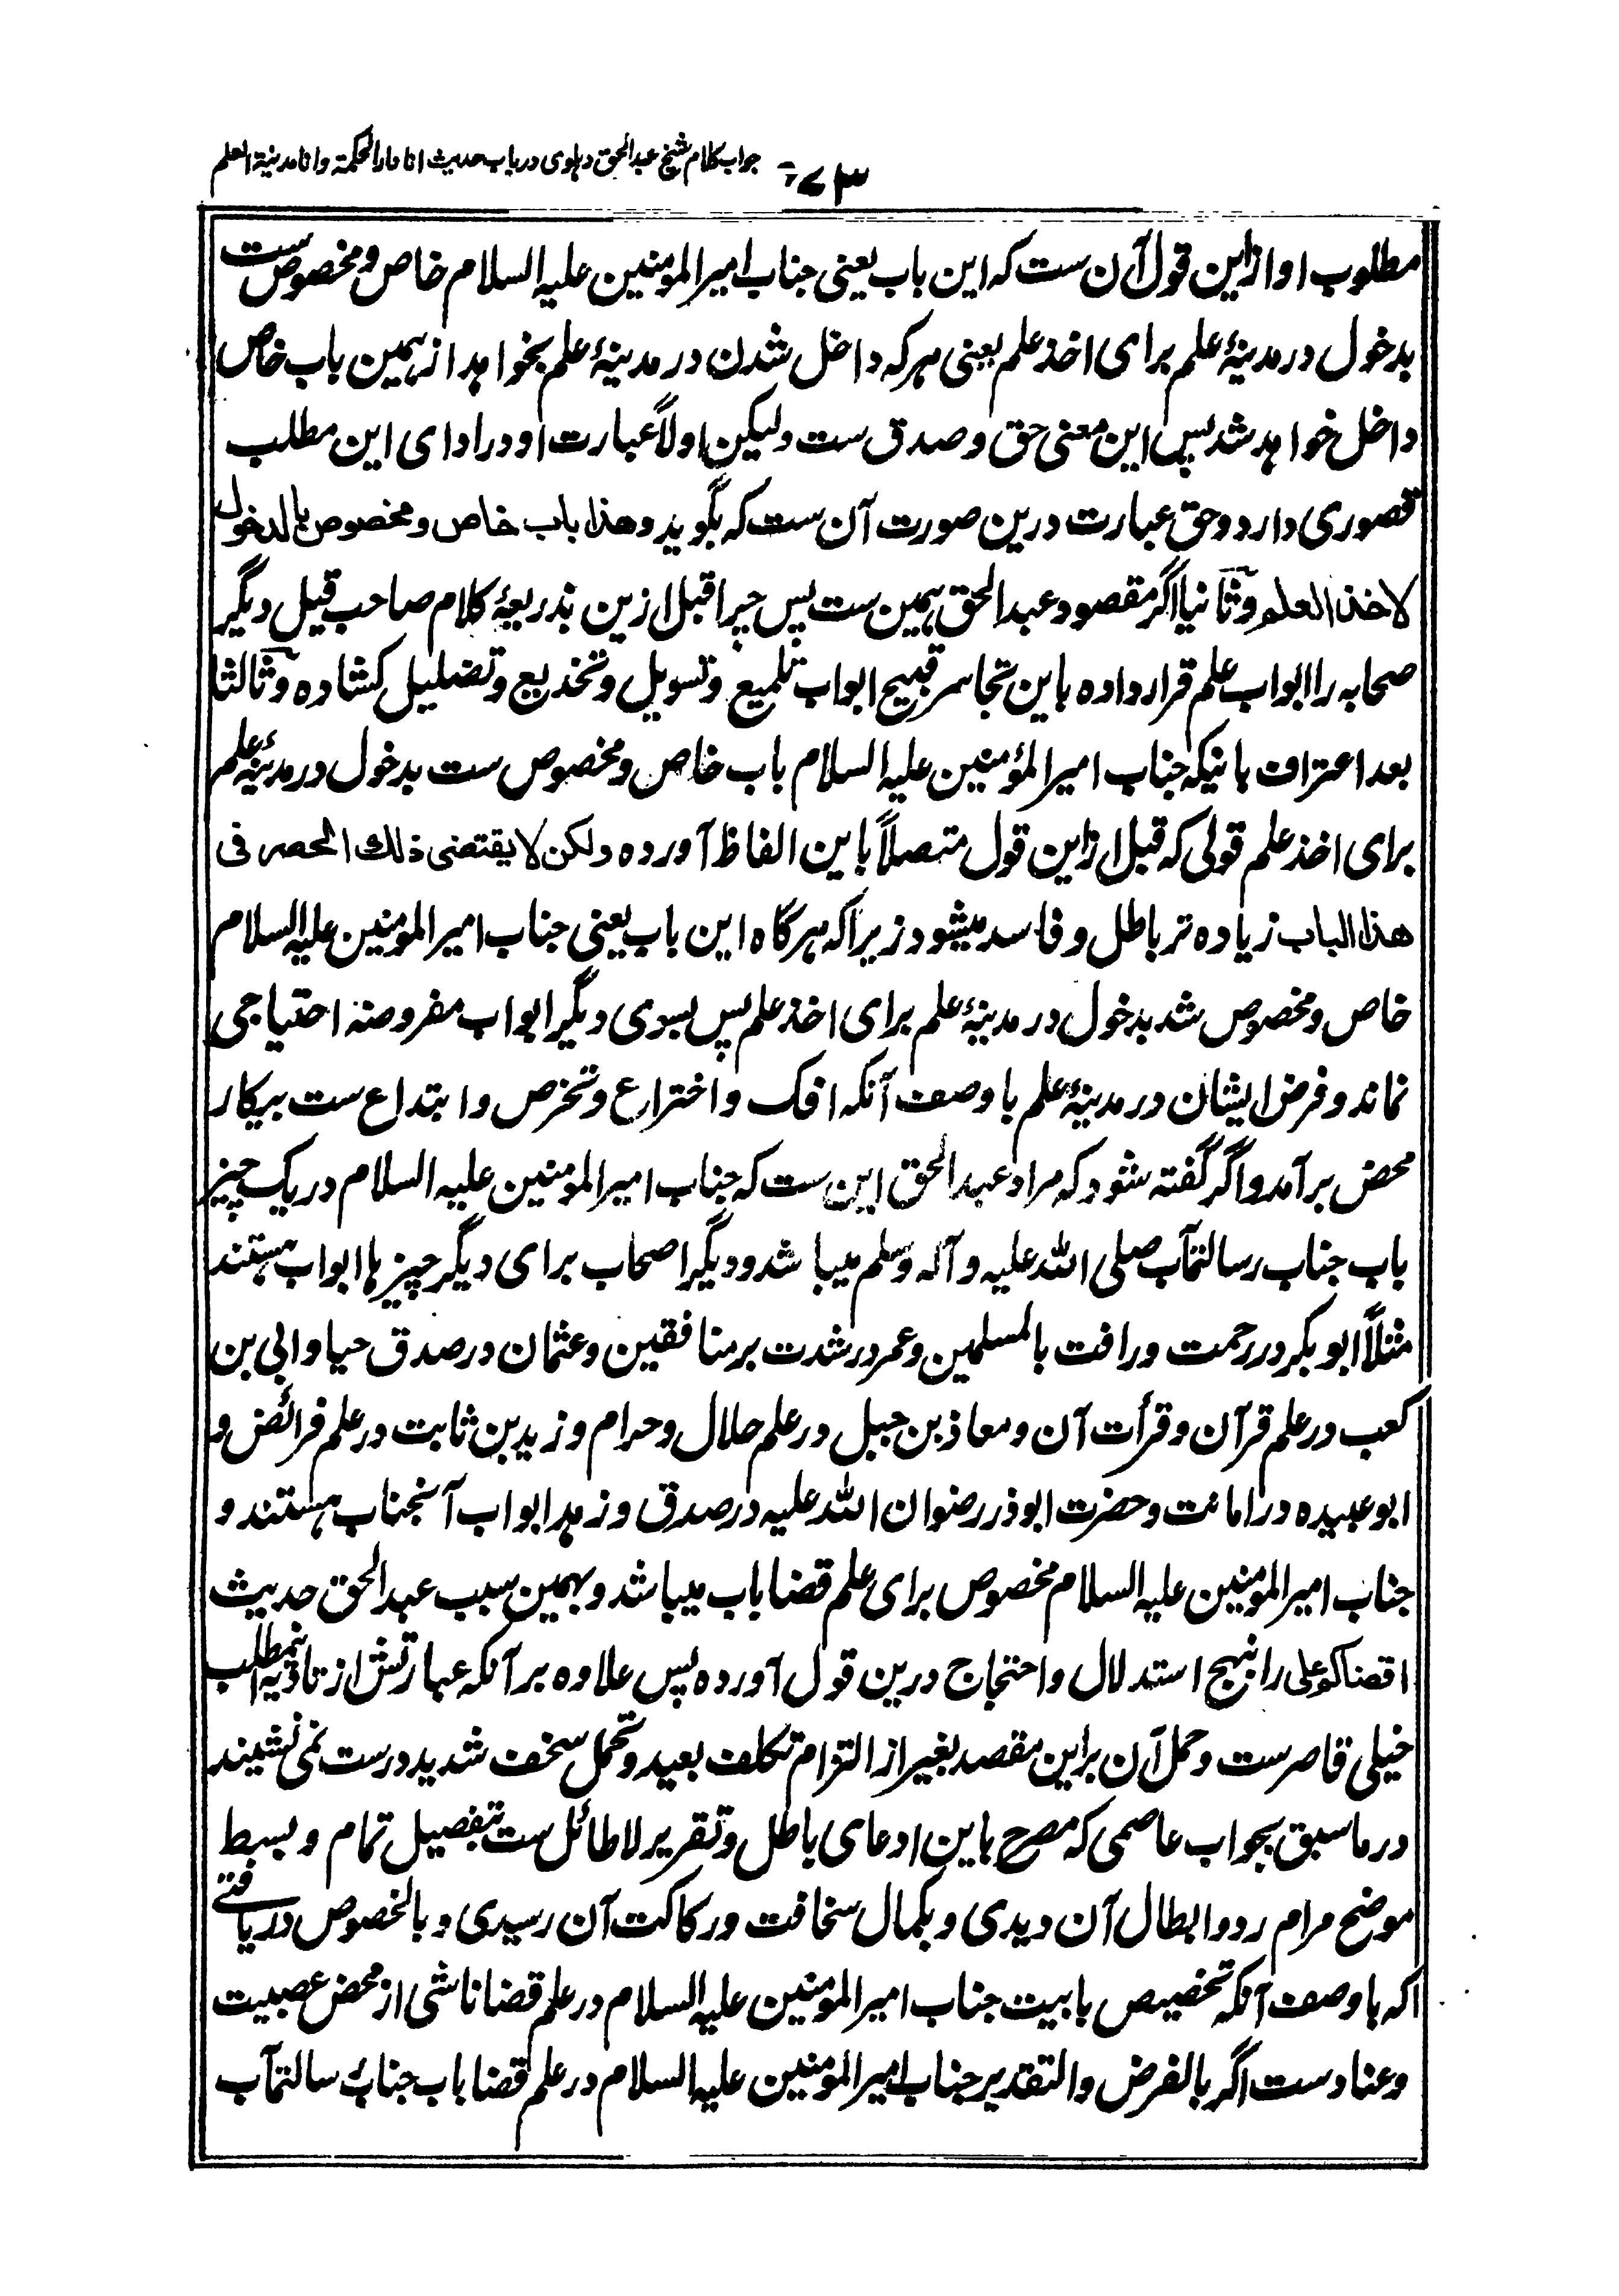 ۶۷۳ جواب کلام شیخ عبدالحق دهلوی در باب حدیث انا دار الحکمة وانا مدینة العلم
مطلوب او ازین قول آن ست که این باب یعنی جناب امیرالمومنین علیه السلام خاص و مخصوص ست
بدخول در مدینهٔ علم برای اخذ علم یعنی هر که داخل شدن در مدینهٔ علم بخواهد از همین باب خاص
داخل خواهد شد پس این معنی حق و صدق ست ولیکن اولاً عبارت او در ادای این مطلب
قصوری دارد و حق عبارت درین صورت آن ست که بگوید وهذا باب خاص ومخصوص بالدخول
لاخذ العلم و ثانیا اگر مقصود عبدالحق همین ست پس چرا قبل ازین بذریعهٔ کلام صاحب قیل دیگر
صحابه را ابواب علم قرار داده باین تجاسر قبیح ابواب تلمیع و تسویل و تخدیع و تضلیل کشاده و ثالثا
بعد اعتراف باینکه جناب امیر المؤمنین علیه السلام باب خاص و مخصوص ست بدخول در مدینهٔ علم
برای اخذ علم قولی که قبل ازین قول متصلاً باین الفاظ آورده ولکن لا یقتضی ذلک الحصر فی
هذا الباب زیاده تر باطل و فاسد میشود زیرا که هرگاه این باب یعنی جناب امیر المومنین علیه السلام
خاص و مخصوص شد بدخول در مدینهٔ علم برای اخذ علم پس بسوی دیگر ابواب مفروضه احتیاجی
نماند و فرض ایشان در مدینهٔ علم با وصف آنکه افک و اختراع و تخرص و ابتداع ست بیکار
محض برآمد و اگر گفته شود که مراد عبدالحق این ست که جناب امیر المومنین علیه السلام در یک چیز
باب جناب رسالتمآب صلی الله علیه و آله وسلم میباشد و دیگر اصحاب برای دیگر چیزها ابواب هستند
مثلاً ابوبکر در رحمت و رافت بالمسلمین و عمر در شدت بر منافقین و عثمان در صدق حیا و ابی بن
کعب در علم قرآن و قرأت آن و معاذ بن جبل در علم حلال و حرام و زید بن ثابت در علم فرائض و
ابو عبیده در امانت و حضرت ابوذر رضوان الله علیه در صدق و زهد ابواب آنجناب هستند و
جناب امیر المومنین علیه السلام مخصوص برای علم قضا باب میباشد و بهمین سبب عبدالحق حدیث
اقضاکم علی را بنهج استدلال و احتجاج درین قول آورده پس علاوه بر آنکه عبارتش از تادیهٔ اینمطلب
خیلی قاصر ست و حمل آن براین مقصد بغیر از التزام تکلف بعید و تحمل سخف شدید درست نمی نشیند
در ما سبق بجواب عاصمی که مصرح باین ادعای باطل و تقریر لاطائل ست بتفصیل تمام و بسط
موضح مرام رد و ابطال آن دیدی و بکمال سخافت و رکاکت آن رسیدی و بالخصوص دریافتی
که با وصف آنکه تخصیص بابیت جناب امیر المومنین علیه السلام در علم قضا ناشی از محض عصبیت
و عناد ست اگر بالفرض والتقدیر جناب امیر المومنین علیه السلام در علم قضا باب جناب رسالتمآب